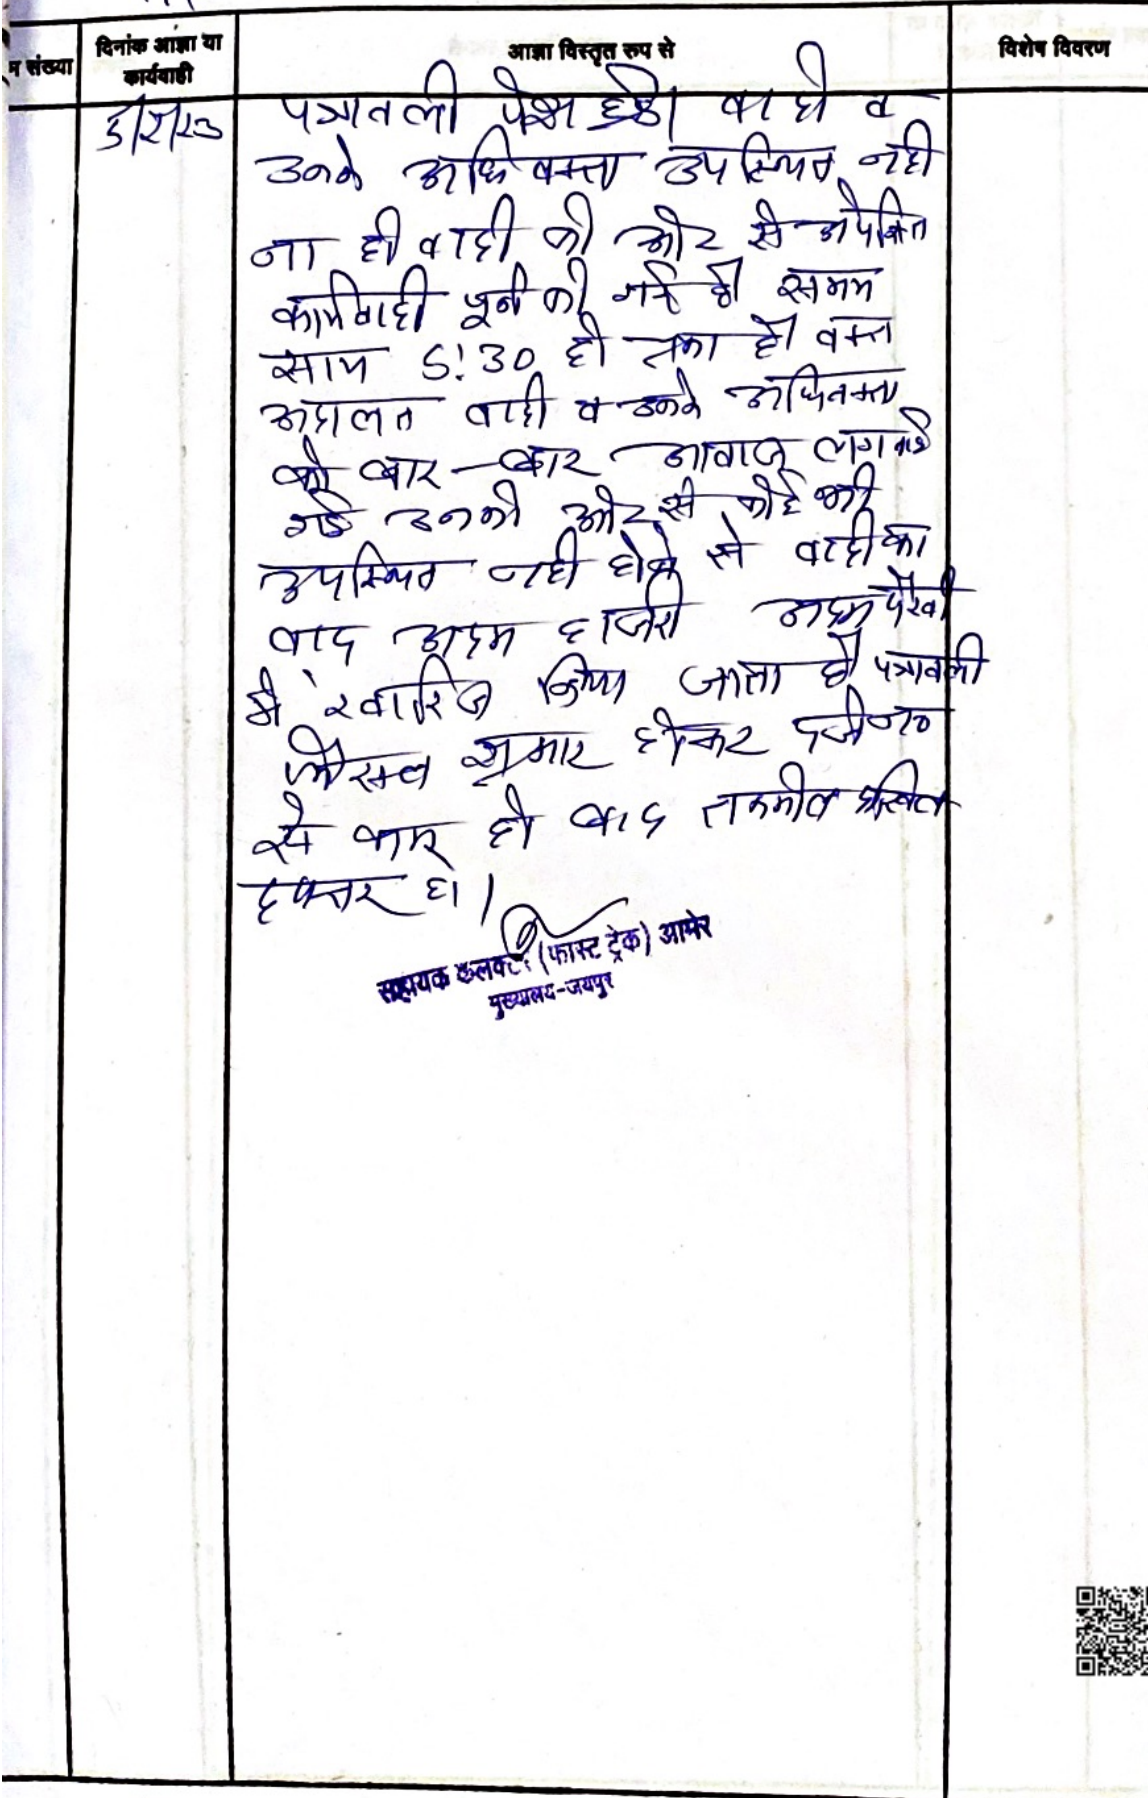 म संख्या
दिनांक आज्ञा या
कार्यवाही
आज्ञा विस्तृत रूप से
विशेष विवरण
पत्रावली पेश हुई। वादी व
उनके अधिवक्ता उपस्थित नही
ना ही वादी की ओर से अपेक्षित
कार्यवाही पूर्ण की गई है समय
साय 5:30 हो चुका है वक्त
अदालत वादी व उनके अधिवक्ता
को बार-बार आवाज लगवाई
गई उनकी ओर से कोई भी
उपस्थित नही होने से वादी का
वाद अदम हाजरी अदम पैरवी
मे खारिज किया जाता है पत्रावली
फैसल शुमार होकर दर्ज
से कम हो बाद तकमील दाखिल
दफ्तर हो।
सहायक कलक्टर (फास्ट ट्रेक) आमेर
मुख्यालय-जयपुर